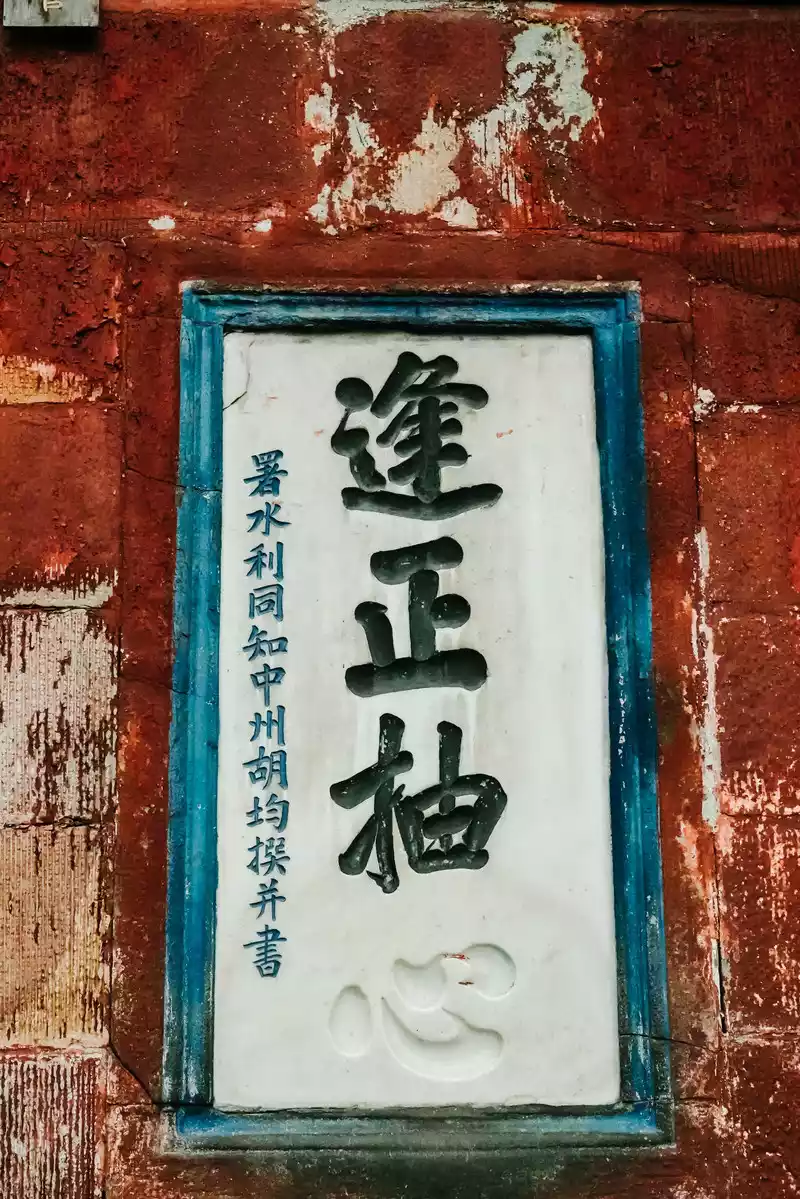 逢正抽心
署水利同知中州胡均撰并書